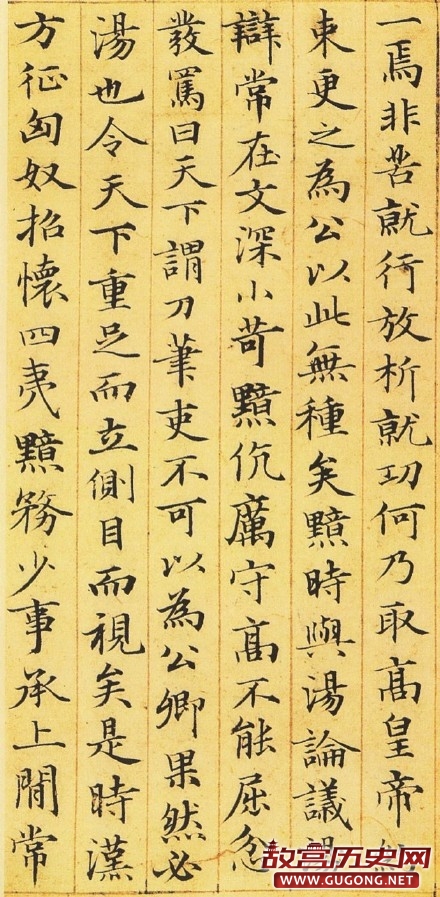 一焉非苦就行放析就功何乃取高皇帝
束更之為公以此無種矣黯時與湯論議湯
辯常在文深小苛黯伉厲守高不能屈忿
發罵曰天下謂刀筆吏不可以為公卿果然必
湯也令天下重足而立側目而視矣是時漢
方征匈奴招懷四夷黯務少事承上間常
故宫历史网
WWW.GUGONG.NET